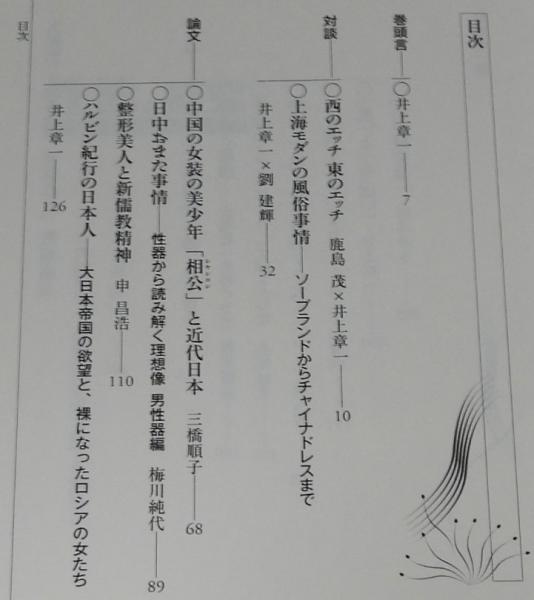 目次
巻頭言――○井上章一――7
対談――○西のエッチ 東のエッチ 鹿島 茂×井上章一――10
○上海モダンの風俗事情――ソープランドからチャイナドレスまで
井上章一×劉 建輝――32
論文――○中国の女装の美少年「相公」と近代日本 三橋順子――68
○日中おまた事情 性器から読み解く理想像 男性器編 梅川純代――89
○整形美人と新儒教精神 申 昌浩――110
○ハルビン紀行の日本人――大日本帝国の欲望と、裸になったロシアの女たち
井上章一――126
目次